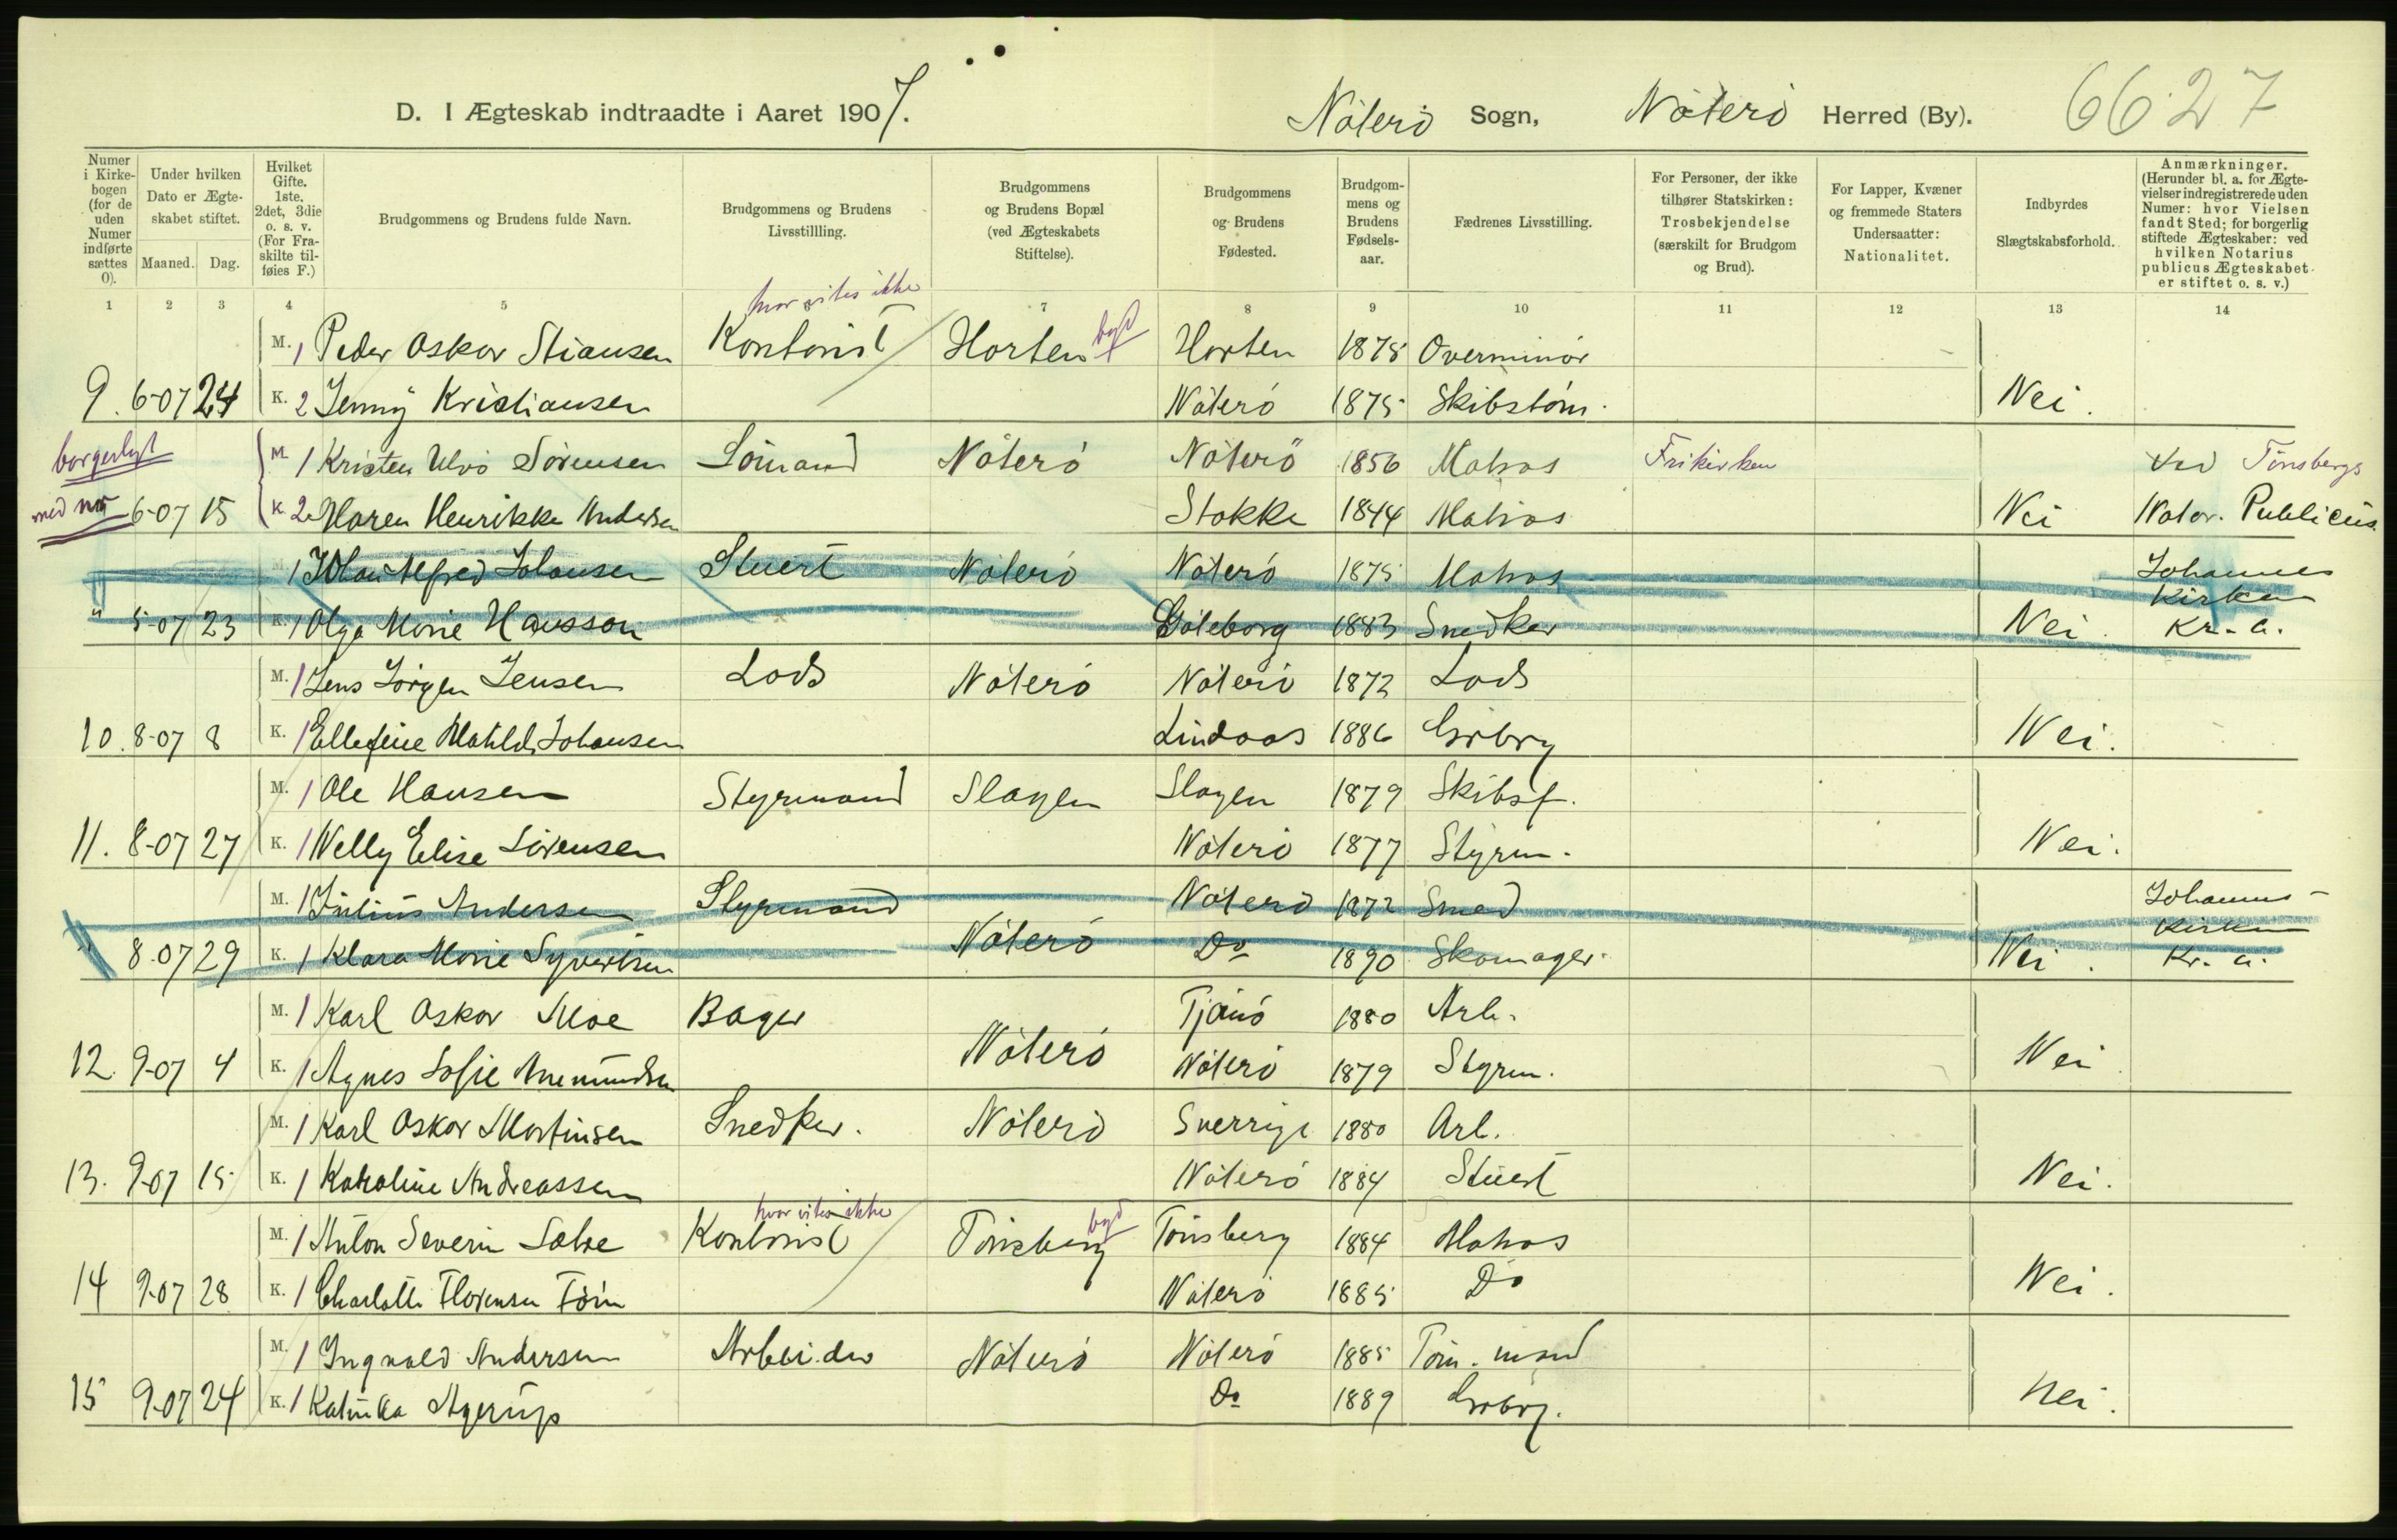 D. I Ægteskab indtraadte i Aaret 1907.
Nöterö Sogn, Nöterö Herred (By). 6627
Numer i Kirkebogen (for de uden Numer indførte sættes 0).
Under hvilken Dato er Ægteskabet stiftet.
Maaned. Dag.
Hvilket Gifte. 1ste. 2det, 3die o. s. v. (For Fraskilte tilføies F.)
Brudgommens og Brudens fulde Navn.
Brudgommens og Brudens Livsstillling.
Brudgommens og Brudens Bopæl (ved Ægteskabets Stiftelse).
Brudgommens og Brudens Fødested.
Brudgommens og Brudens Fødselsaar.
Fædrenes Livsstilling.
For Personer, der ikke tilhører Statskirken: Trosbekjendelse (særskilt for Brudgom og Brud).
For Lapper, Kvæner og fremmede Staters Undersaatter: Nationalitet.
Indbyrdes Slægtskabsforhold.
Anmærkninger. (Herunder bl. a. for Ægtevielser indregistrerede uden Numer: hvor Vielsen fandt Sted; for borgerlig stiftede Ægteskaber: ved hvilken Notarius publicus Ægteskabet er stiftet o. s. v.)
1 2 3 4 5 7 8 9 10 11 12 13 14
hvor vites ikke
M. 1 Peder Oskar Stiansen Kontorist Horten by Horten 1878 Overminör
9. 6-07 24 K. 2 Jenny Kristiansen Nöterö 1875 Skibstöm. Nei.
borgerligt M. 1 Kristen Ulvö Sörensen Sömand Nöterö Nöterö 1856 Matros Frikirken Ved Tönsbergs
med 6-07 15 K. 2 Maren Henrikke Andersen Stokke 1844 Matros Nei Notar. Publicus
1 Johan Alfred Johansen Stuert Nöterö Nöterö 1875 Matros Johannes Kirken
" 5-07 23 K. 1 Olga Marie Hansson Göteborg 1883 Snedker Nei. Kr.a.
M. 1 Jens Jörgen Jensen Lods Nöterö Nöterö 1872 Lods
10. 8-07 8 K. 1 Ellefine Matilde Johansen Lindaas 1886 Grbrg Nei.
M. 1 Ole Hansen Styrmand Slagen Slagen 1879 Skibsf.
11. 8-07 27 K. 1 Nelly Elise Sörensen Nöterö 1877 Styrm. Nei.
M. 1 Julius Andersen Styrmand Nöterö 1872 Smed Johannes-Kirken
" 8-07 29 K. 1 Klara Marie Syvertsen Nöterö Do 1890 Skomager. Nei. Kr.a.
M. 1 Karl Oskar Moe Bager Tjömö 1880 Arb.
12. 9-07 4 K. 1 Agnes Sofie Anemundsen Nöterö Nöterö 1879 Styrm. Nei
M. 1 Karl Oskar Martinsen Snedker. Nöterö Sverrige 1880 Arb.
13. 9-07 15 K. 1 Karoline Andreassen Nöterö 1884 Stuert Nei.
hvor vites ikke
M. 1 Anton Severin Sætre Kontorist Tönsberg by Tönsberg 1884 Matros
14 9-07 28 K. 1 Charlotte Florense Nöterö 1885 Do Nei.
M. 1 Ingvald Andersen Arbeider Nöterö Nöterö 1885 Töm.mand
15 9-07 24 K. 1 Katinka Agerup Do 1889 Grbrg. Nei.